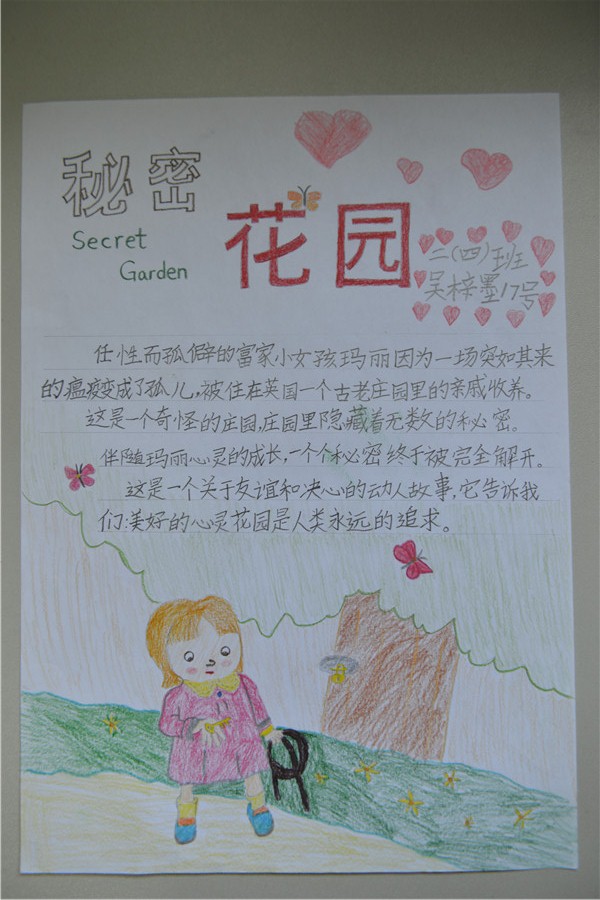 秘密
Secret
Garden
花园
二(四)班
吴梓墨17号
任性而孤僻的富家小女孩玛丽因为一场突如其来
的瘟疫变成了孤儿,被住在英国一个古老庄园里的亲戚收养。
这是一个奇怪的庄园,庄园里隐藏着无数的秘密。
伴随玛丽心灵的成长,一个个秘密终于被完全解开。
这是一个关于友谊和决心的动人故事,它告诉我
们:美好的心灵花园是人类永远的追求。